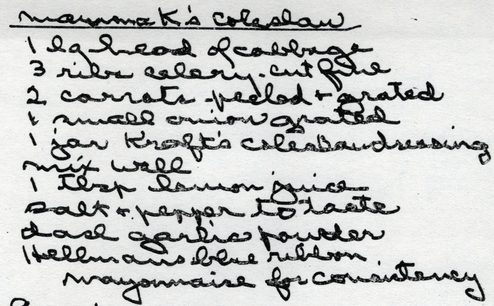 mamma K's coleslaw
1 lg head of cabbage
3 ribs celery-cut fine
2 carrots-peeled + grated
1 small onion grated
1 jar Kraft's coleslawdressing
mix well
1 tbsp lemon juice
salt + pepper to taste
dash garlic powder
Hellmans blue ribbon
mayonnaise for consistency